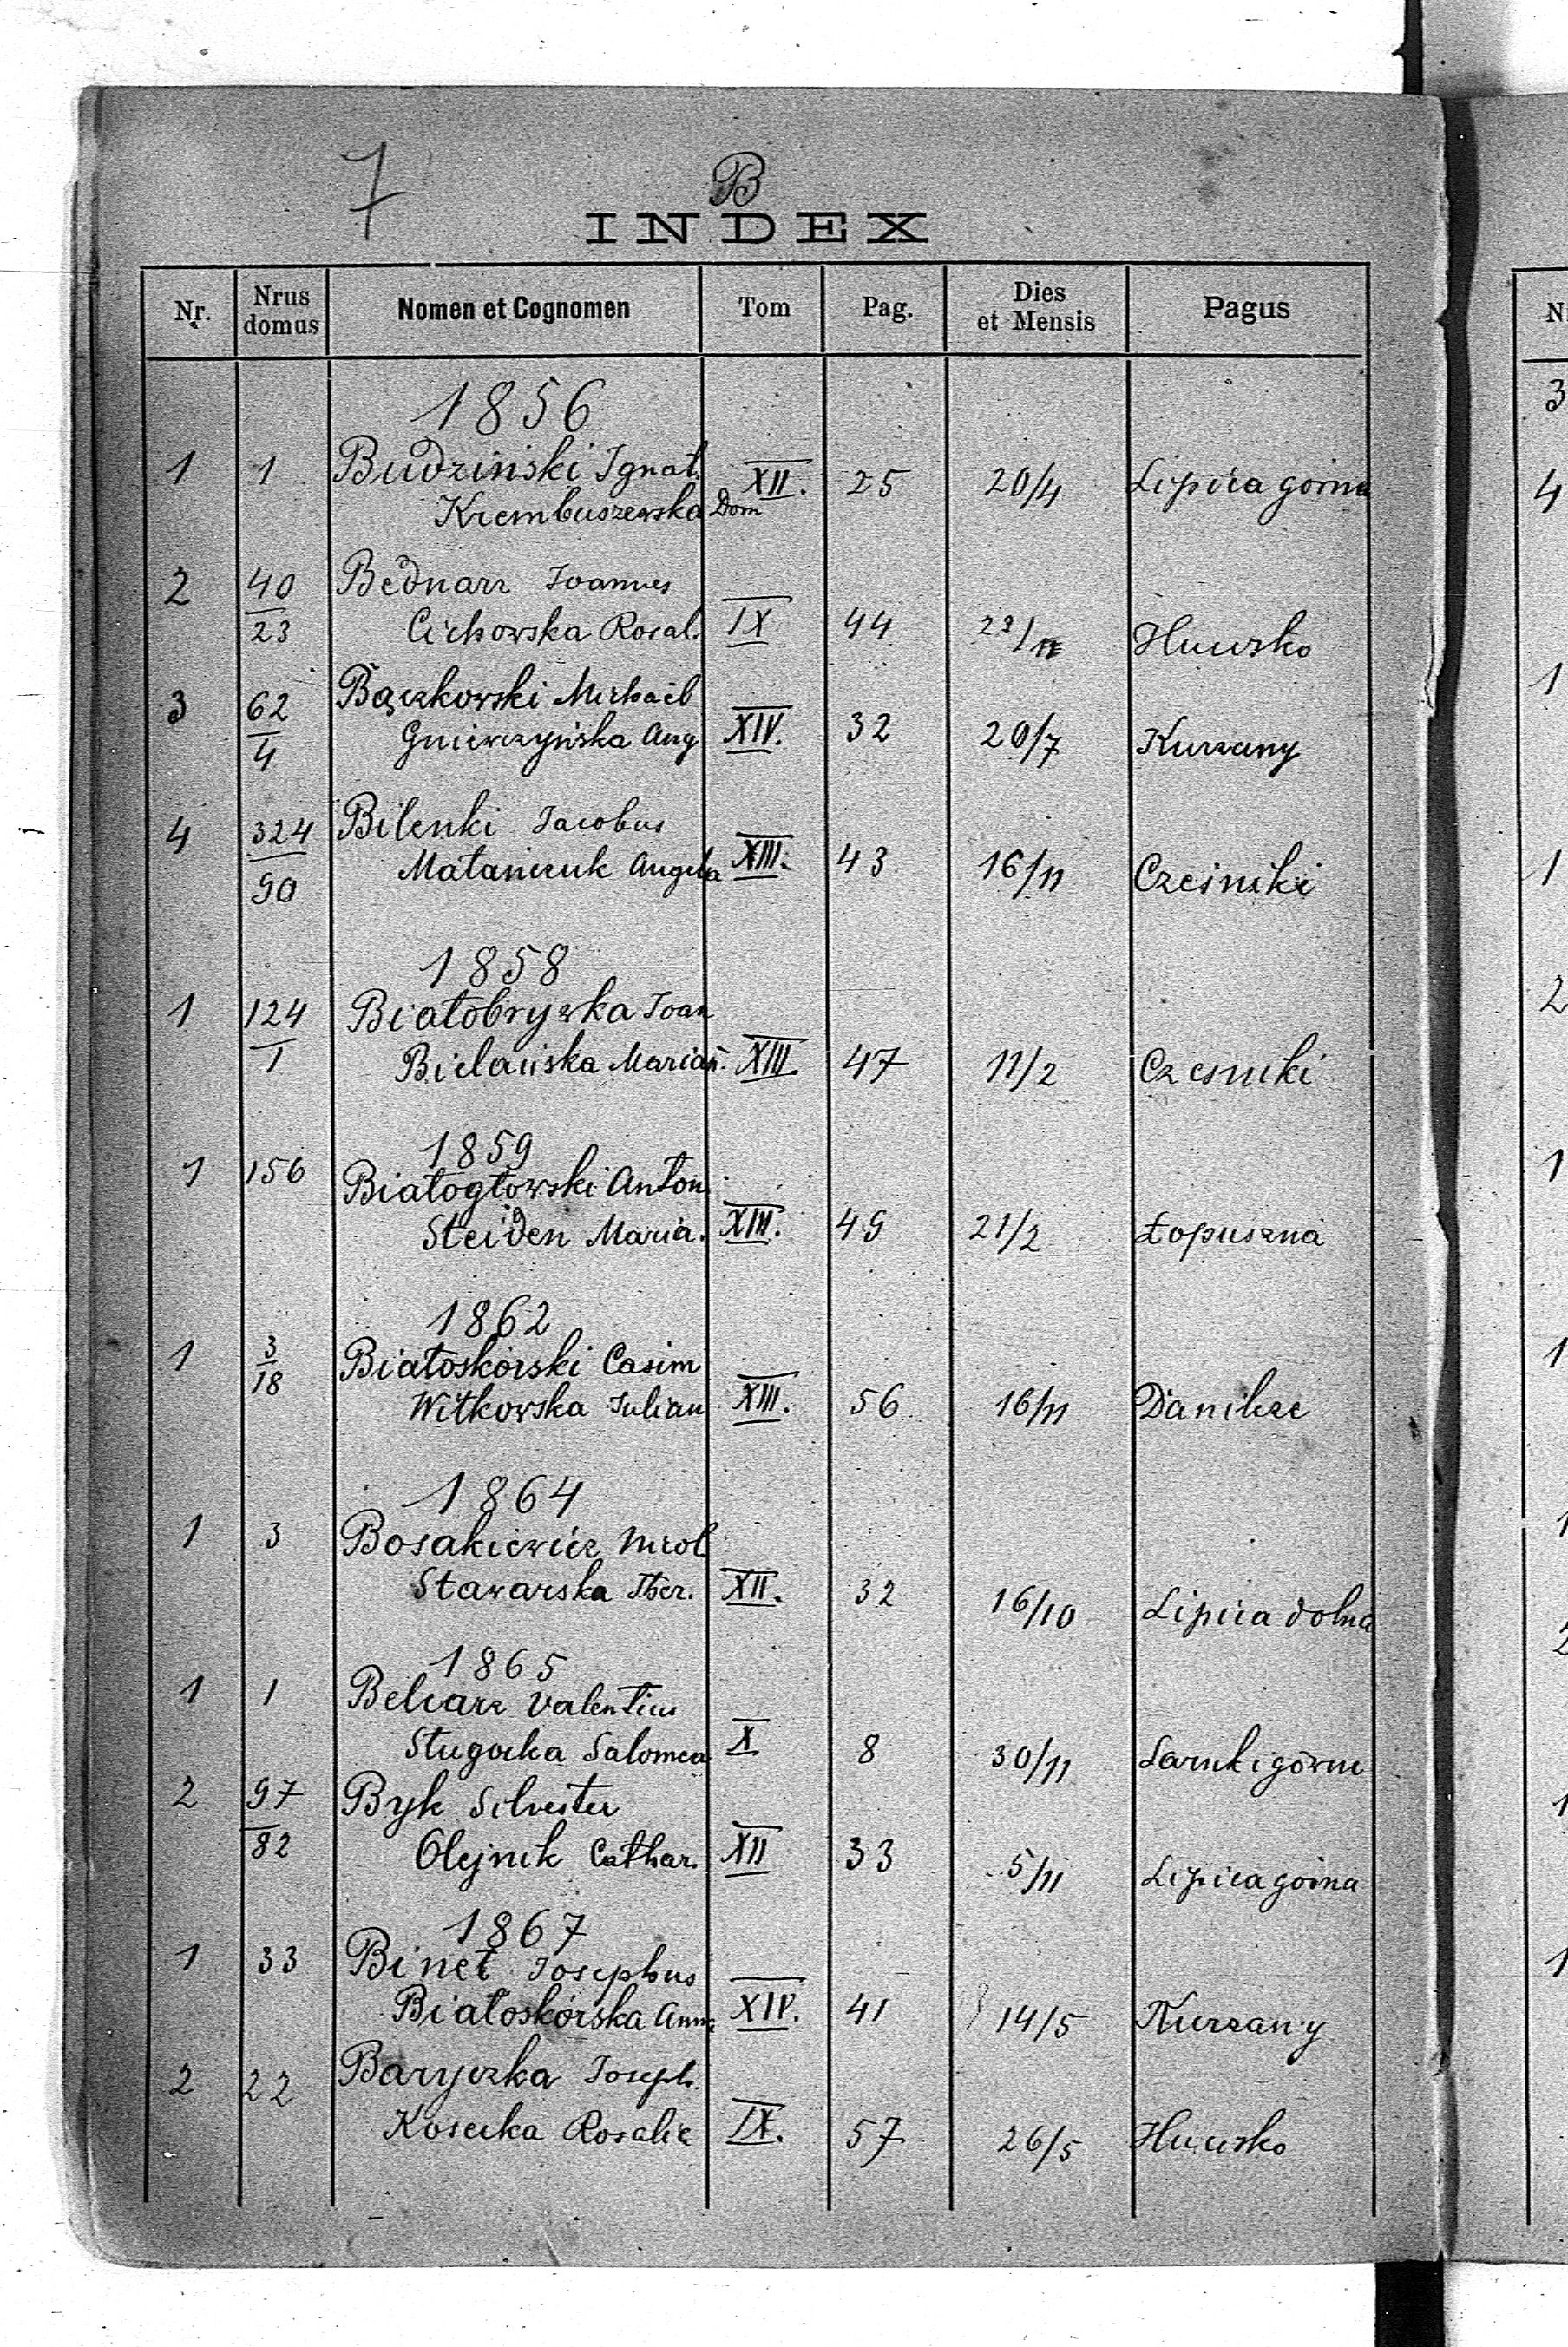 7
B
INDEX
Nr. Nrus domus Nomen et Cognomen Tom Pag. Dies et Mensis Pagus
1856
1 1 Budziński Ignat. XII. 25 20/4 Lipica górna
Krembuszewska Dom
2 40/23 Bednarz Joannes
Cichowska Rosal. IX 44 Hucisko
3 62/4 Bączkowski Michael
Gniewczyńska Ang XIV. 32 20/7 Kurzany
4 324/90 Bilenki Jacobus
Matańczuk Angela XIII. 43 16/11 Cześniki
1858
1 124/1 Białobrywka Joan
Bielańska Mariań. XIII. 47 11/2 Czesniki
1859
1 156 Białogłowski Anton.
Steiden Maria. XIII. 49 21/2 Łopuszna
1862
1 3/18 Białoskórski Casim
Witkowska Julian XIII. 56 16/11 Danilcze
1864
1 3 Bosakiewicz Nicol.
Stawarska Ther. XII. 32 16/10 Lipica dolna
1865
1 1 Belcarz Valentius
Sługocka Salomea X 8 30/11 Sarnki górne
2 97/82 Byk Silvester
Olejnik Cathar. XII 33 5/11 Lipica górna
1867
1 33 Binet Josephus
Białoskórska Anna XIV. 41 14/5 Kurzany
2 22 Baryczka Joseph.
Kosecka Rosalie IX. 57 26/5 Hucisko
N
3
4
1
1
2
1
1
1
2
1
1